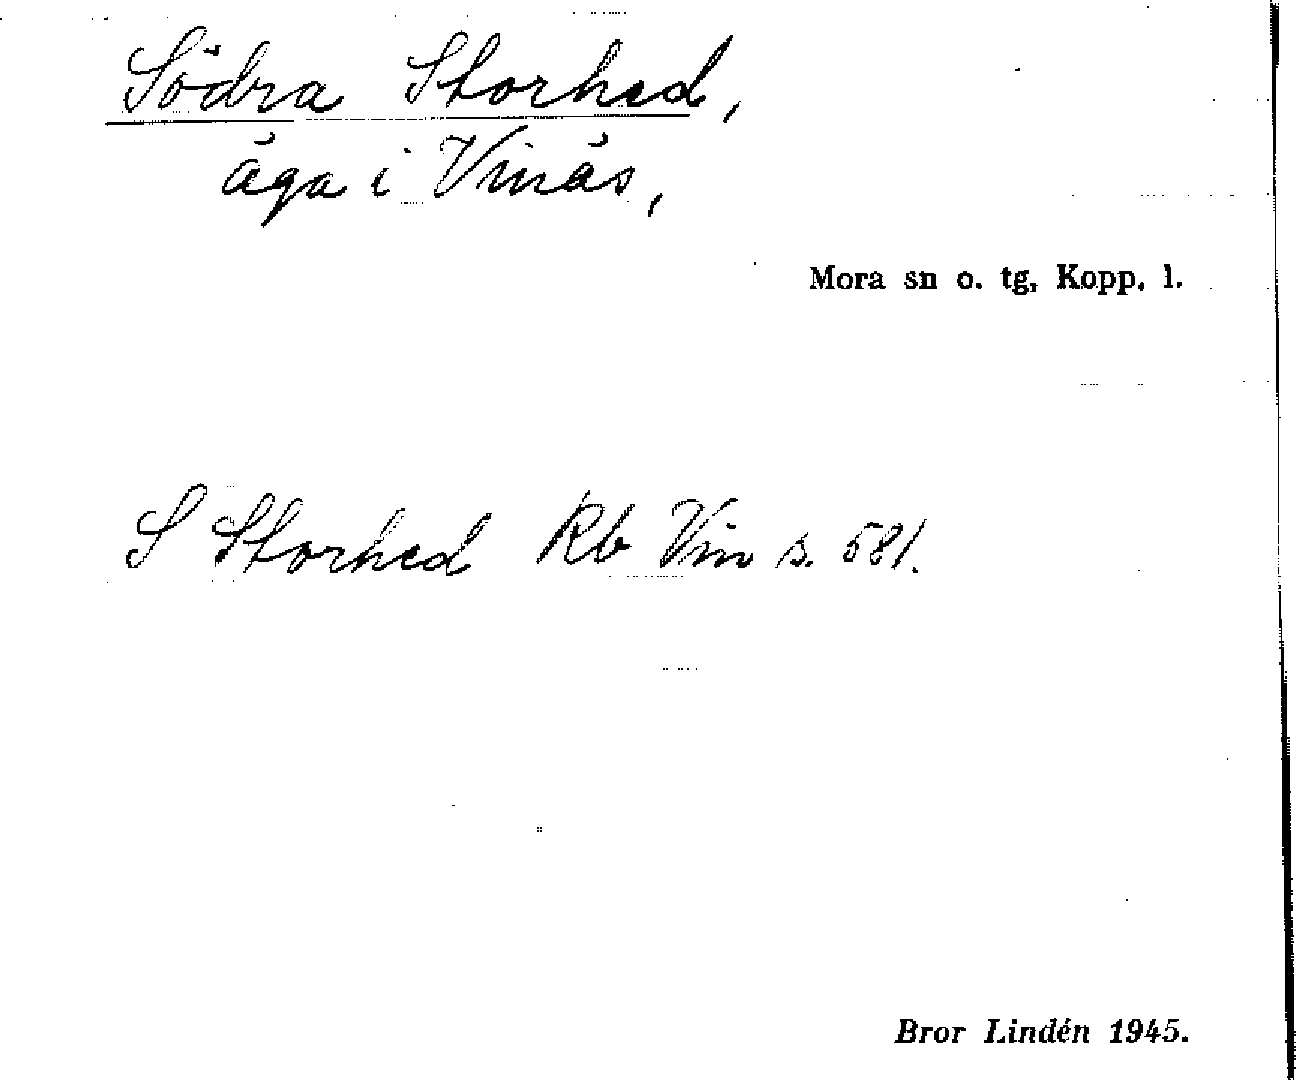 Södra Storhed,
äga i Vinäs,
Mora sn o. tg, Kopp. l.
S Storhed Rb Vin s. 581.
Bror Lindén 1945.